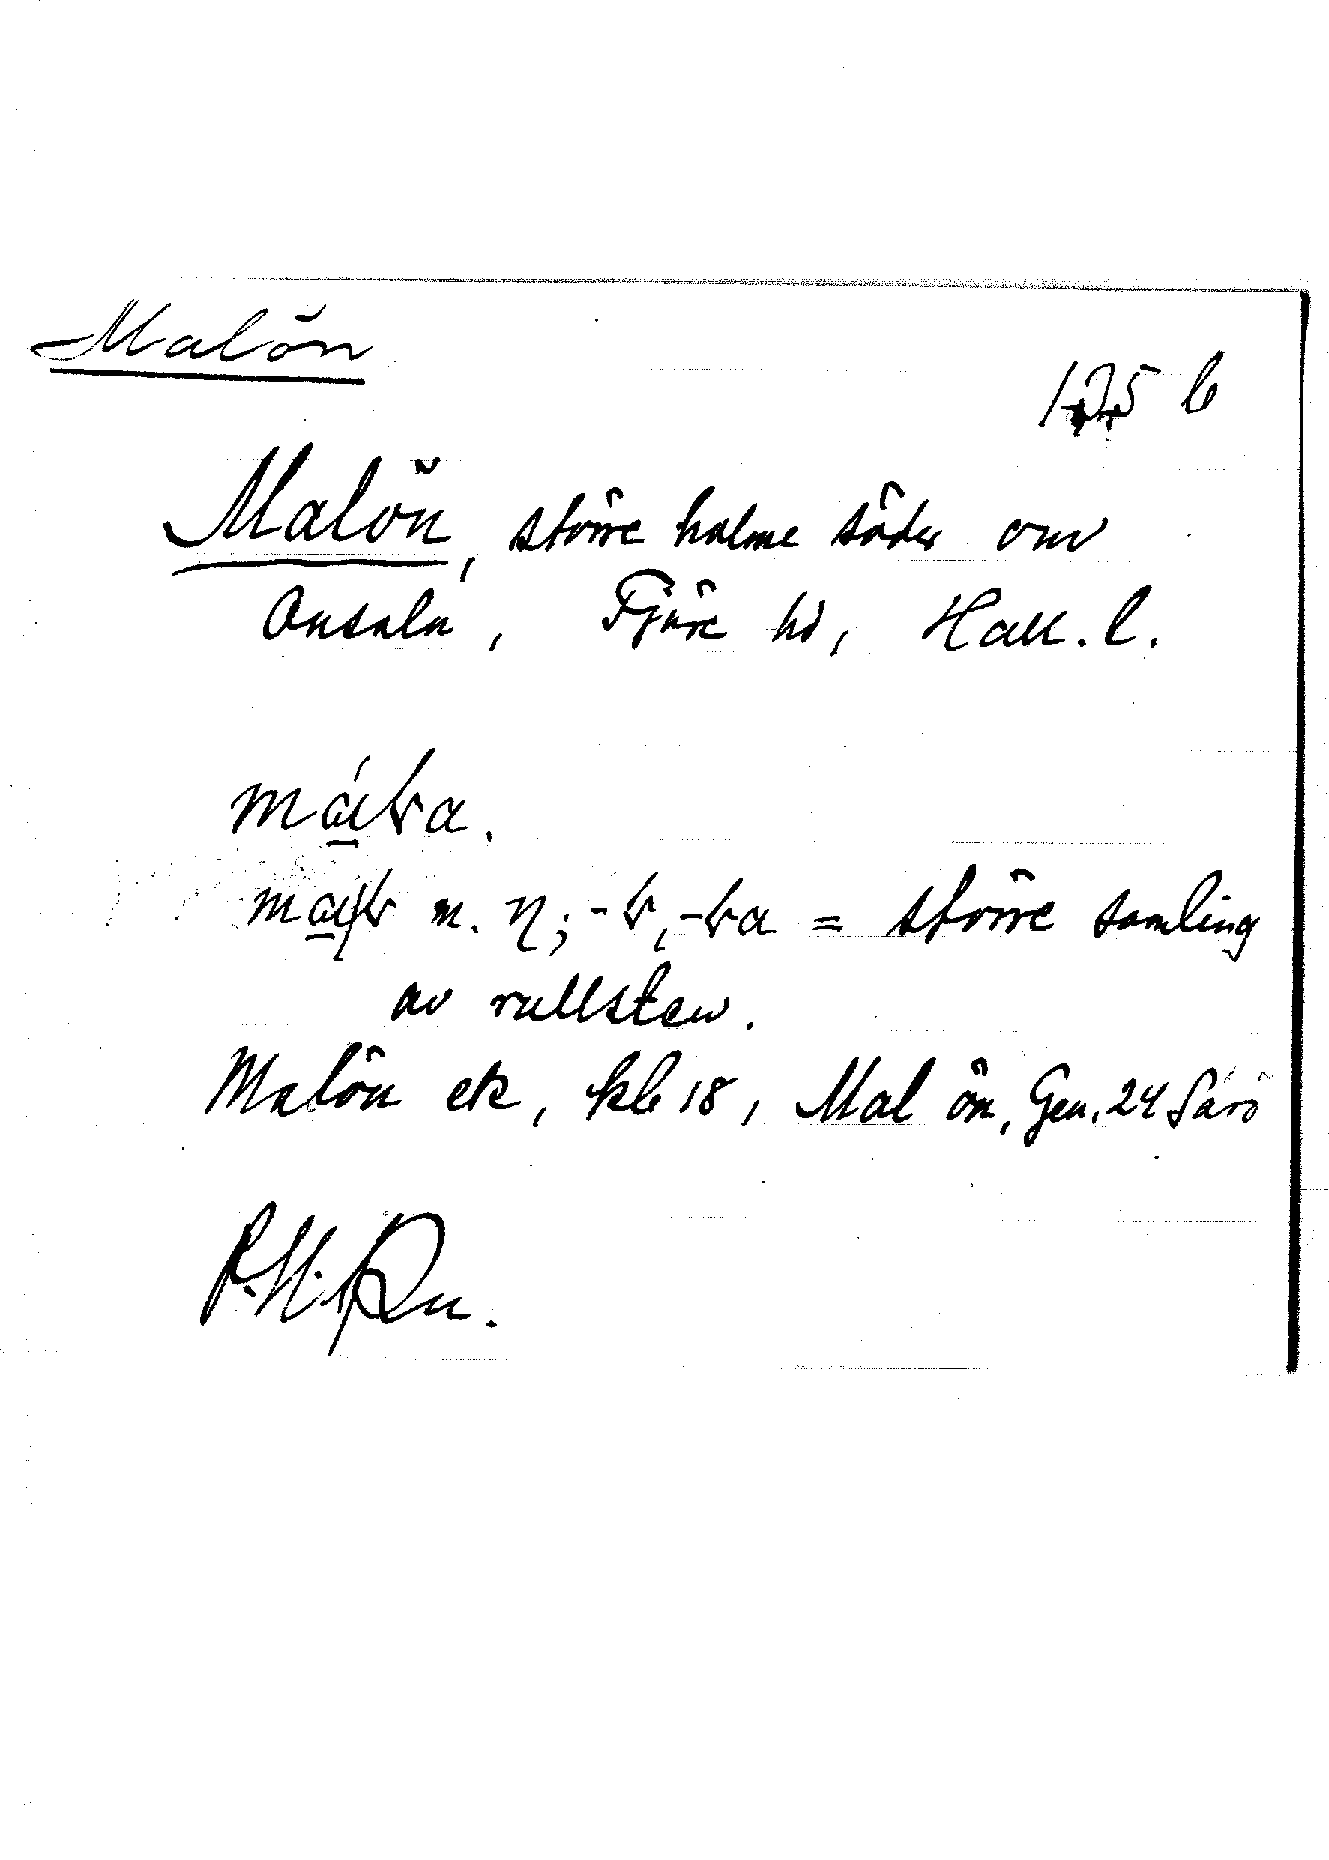 Malön
135 b
Malön, större holme söder om
Onsala, Fjäre hd, Hall. l.
m. -ɽ, -ɽa = större samling
av rullsten.
Malön ek, kb 18, Mal ön, Gen. 24 Särö